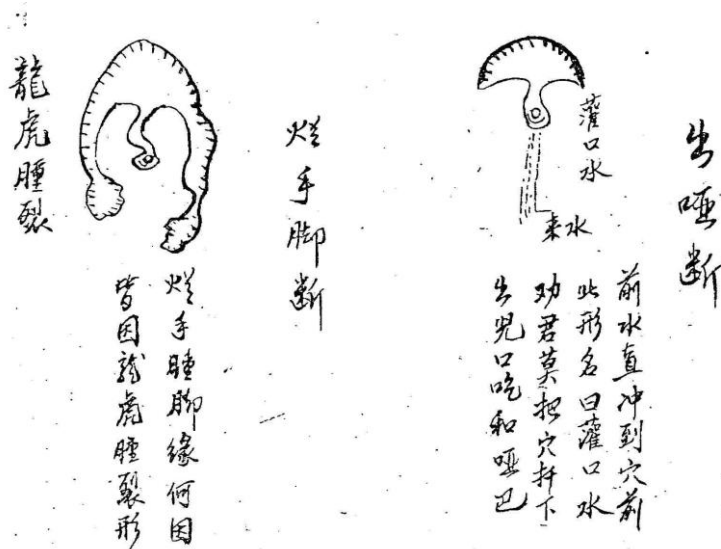 出哑断
灌口水
来水
前水直冲到穴前
此形名曰灌口水
劝君莫把穴扦下
出儿口吃和哑巴
烂手脚断
龍虎腫裂
烂手腫脚缘何因
皆因龍虎腫裂形